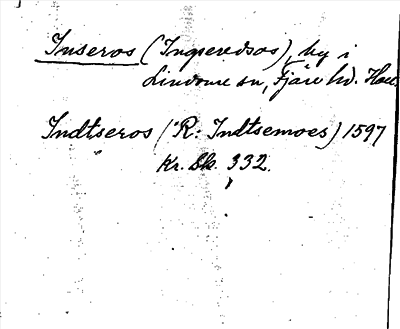 Inseros (Ingeredsos), by i
Lindome sn, Fjäre hd. Hall.
Indtseros (R: Indtsemoes) 1597
Kr. Sk. 332.